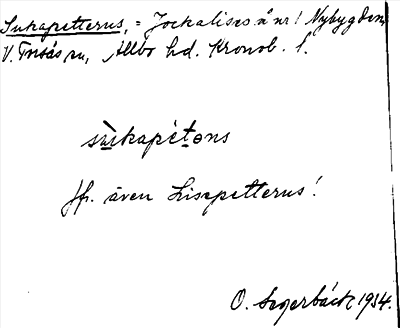 Sukapetterus, = Jockalises å nr 1 Nybygden,
V. Torsås sn, Allbo hd. Kronob. l.
sùkapétəns
Jfr. även Lisapetterus!
O. Segerbäck 1934.